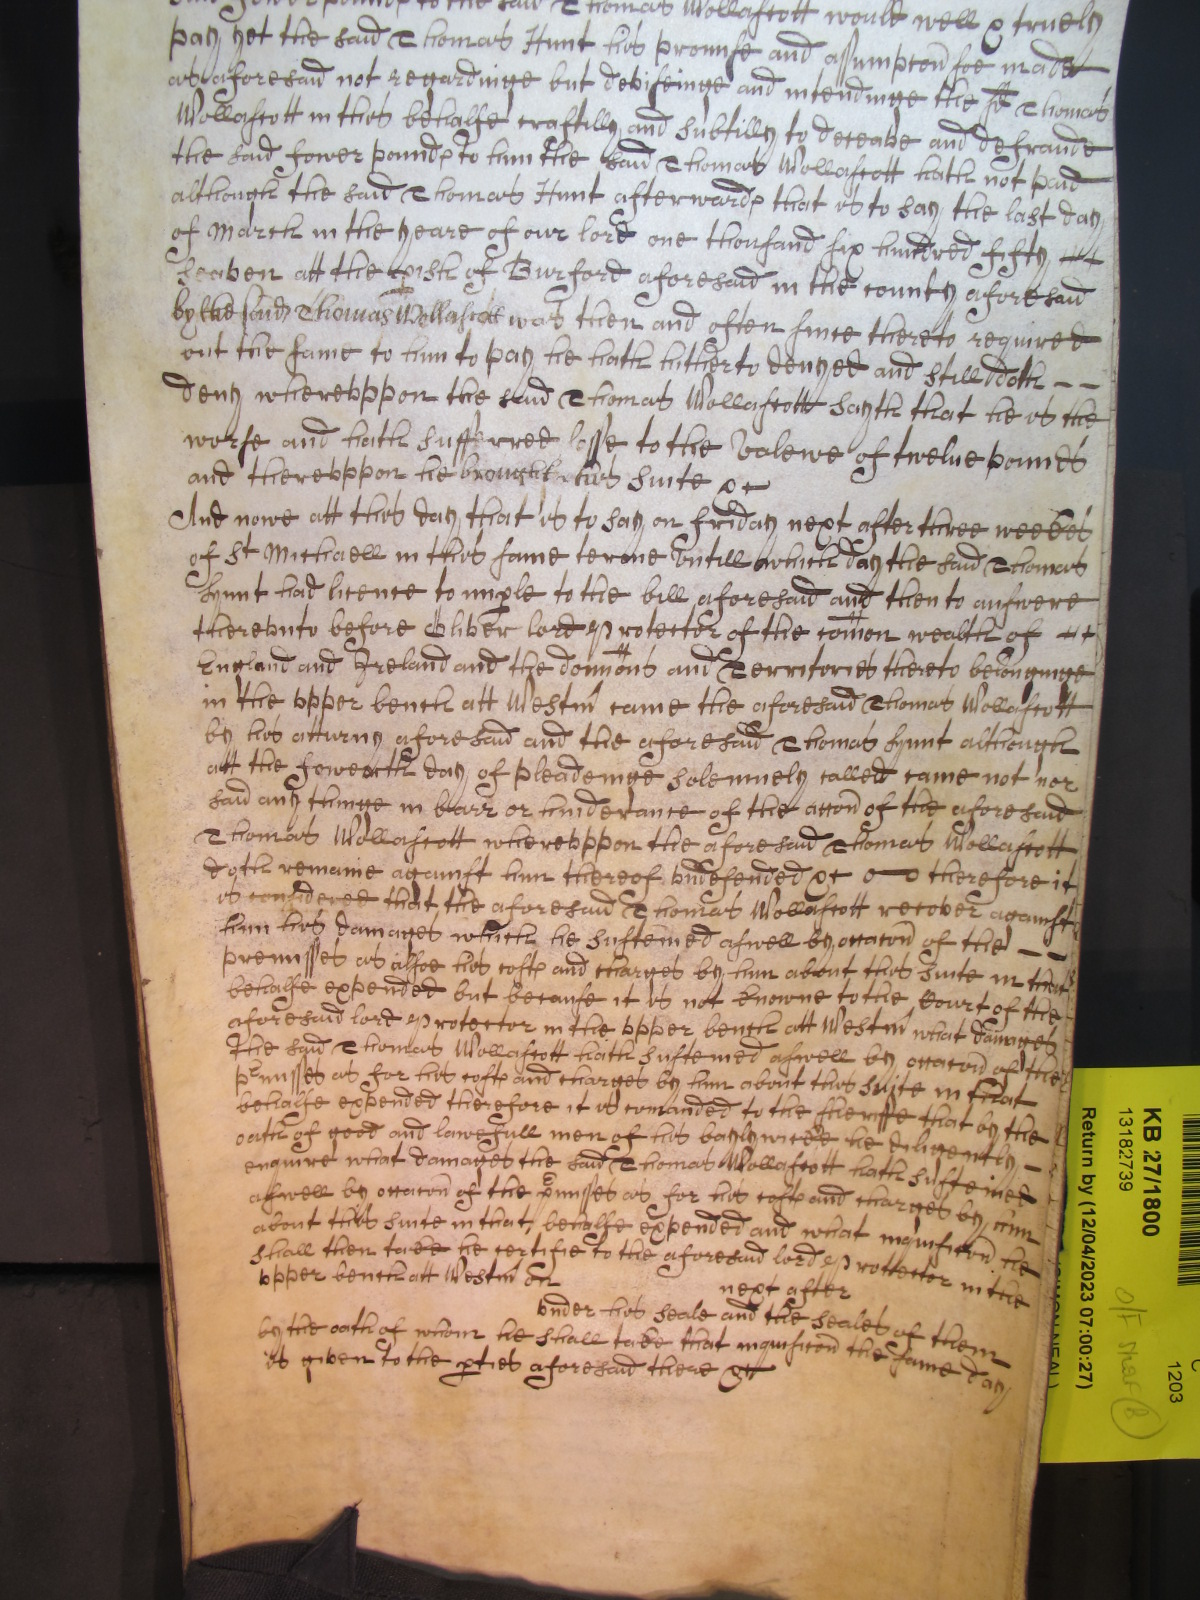 fower pounds to the said Thomas Wollascott would well & truely
pay yet the said Thomas Hunt his promise and assumpcon soe made
as aforesaid not regardinge but deviseinge and intendinge the sd Thomas
Wollascott in this behalfe craftilly and subtilly to deceave and defraude
the said fower pounds To him the said Thomas Wollascott hath not paid
although the said Thomas Hunt afterwards that is to say the last day
of March in the yeare of our lord one thousand six hundred fifty
seaven att the pish of Burford aforesaid in the county aforesaid
by the said Thomas Wollascott was then and often since thereto required
but the same to him to pay he hath hitherto denyed and still doth
deny whereuppon the said Thomas Wollascott sayth that he is the
worse and hath sufferred losse to the valewe of twelve pounds
and thereuppon he brought this suite &c
And nowe att this day that is to say on friday next after three weekes
of St Michaell in this same terme untill which day the said Thomas
Hynnt had licence to imple to the bill aforesaid and then to answere
thereunto before Oliver lord Protector of the comon wealth of
England and Ireland and the domons and Territories thereto belonginge
in the upper bench att Westm came the aforesaid Thomas Wollascott
by his atturny aforesaid and the aforesaid Thomas Hynnt although
att the fowerth day of pleadeinge solemnely called came not nor
said any thinge in barr or hinderance of the accon of the aforesaid
Thomas Wollascott whereuppon the aforesaid Thomas Wollascott
doth remaine against him thereof undefended &c therefore it
is considered that the aforesaid Thomas Wollascott recover against
him his damages which he susteined aswell by occacon of the
premisses as alsoe his costs and charges by him about this suite in that
behalfe expended but because it is not knowne to the Court of the
aforesaid lord Protector in the upper bench att Westm what damages
the said Thomas Wollascott hath susteined aswell by occacon of the
pmisses as for his costs and charges by him about this suite in that
behalfe expended therefore it is comanded to the sheriffe that by the
oath of good and lawefull men of his baylywicke he diligently
enquire what damages the said Thomas Wollascott hath susteined
aswell by occacon of the pmisses as for his costs and charges by him
about this suite in that behalfe expended and what inquisicon he
shall then take he certifie to the aforesaid lord Protector in the
upper bench att Westm on next after
under his seale and the seales of them
by the oath of whom he shall take that inquisicon the same day
is given to the pties aforesaid there &c
KB 27/1800
13182739
Return by (12/04/2023 07:00:27)
1203